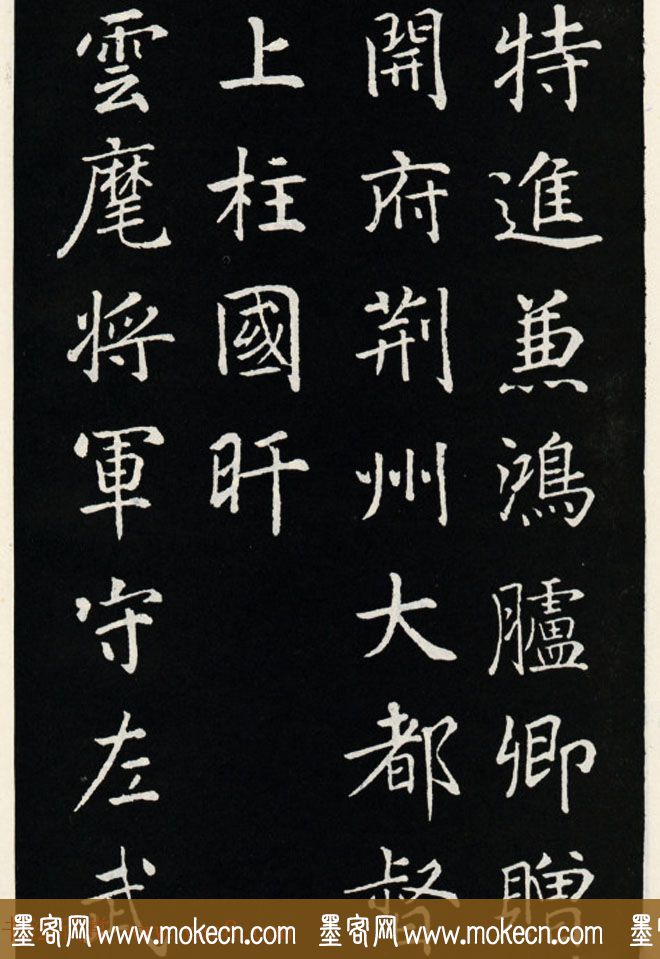 特進兼鴻臚卿贈
開府荆州大都督
上柱國旰
雲麾將軍守左武
墨客网 www.mokecn.com 墨客网 www.mokecn.com